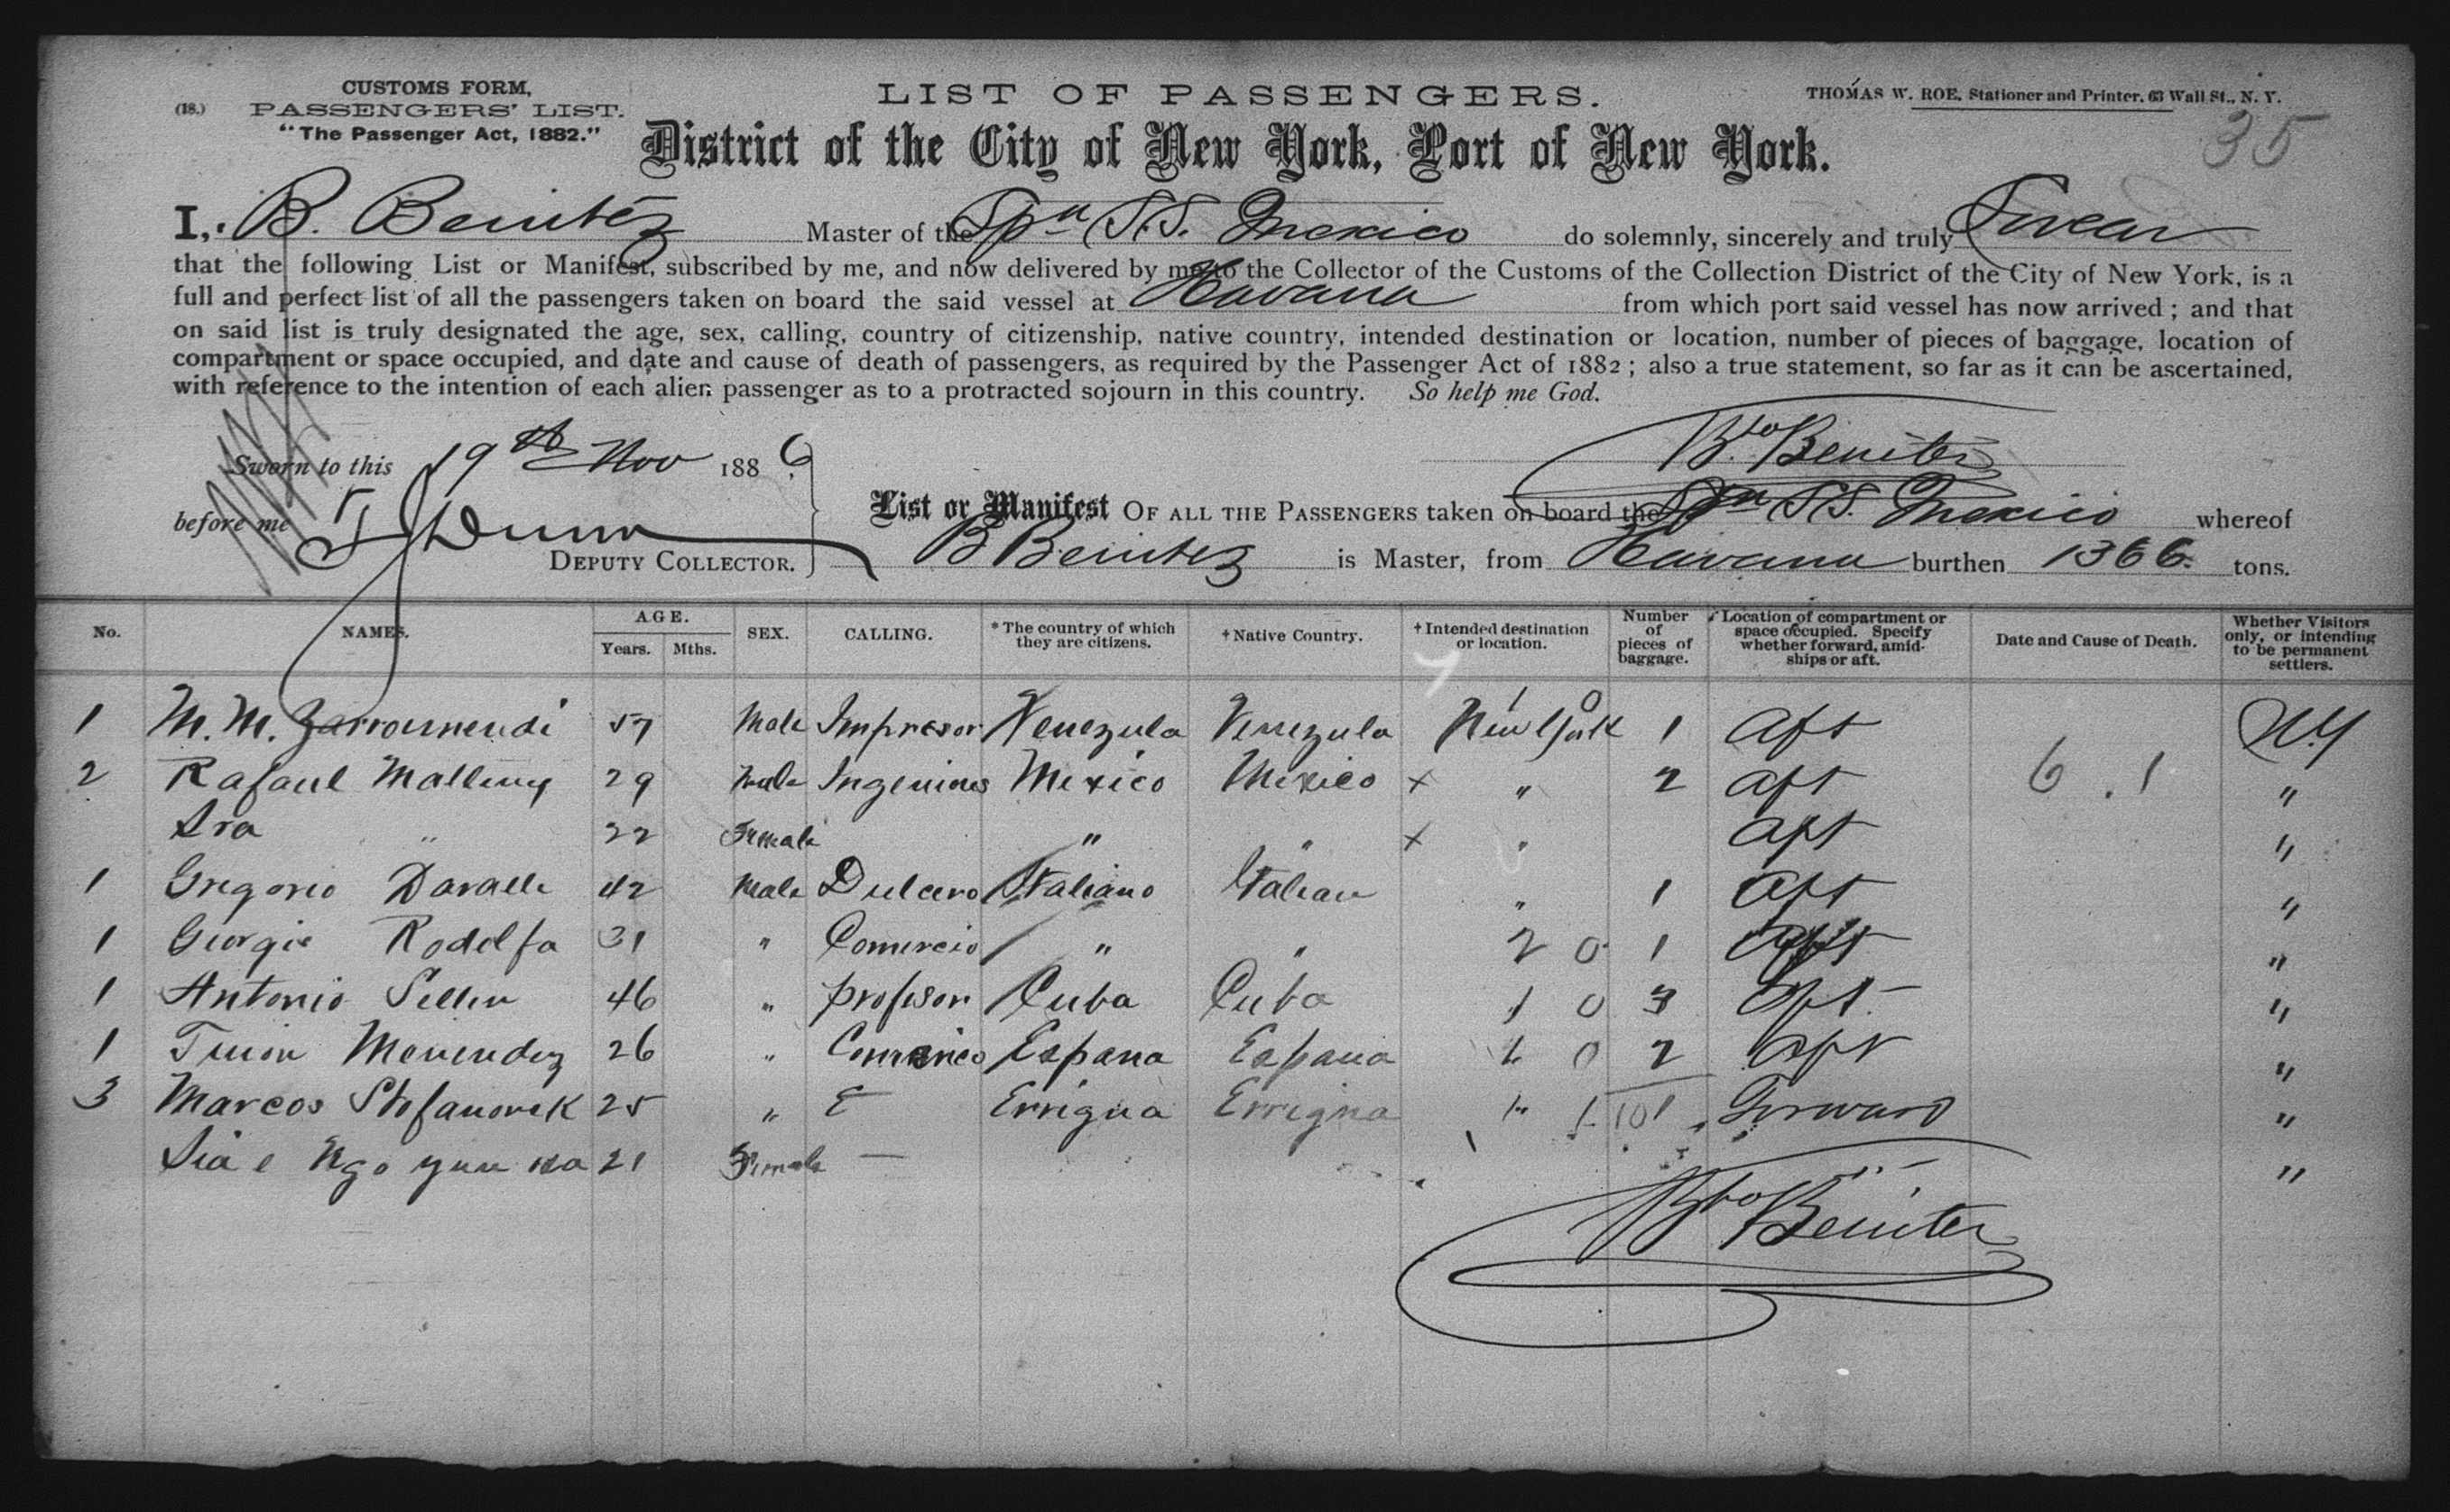 CUSTOMS FORM,
(18.) PASSENGERS' LIST.
"The Passenger Act, 1882."
LIST OF PASSENGERS.
THOMAS W. ROE, Stationer and Printer, 63 Wall St., N. Y.
35
District of the City of New York, Port of New York.
I, B. Benitez Master of the Spn S.S. Mexico do solemnly, sincerely and truly Swear
that the following List or Manifest, subscribed by me, and now delivered by me to the Collector of the Customs of the Collection District of the City of New York, is a
full and perfect list of all the passengers taken on board the said vessel at Havana from which port said vessel has now arrived ; and that
on said list is truly designated the age, sex, calling, country of citizenship, native country, intended destination or location, number of pieces of baggage, location of
compartment or space occupied, and date and cause of death of passengers, as required by the Passenger Act of 1882 ; also a true statement, so far as it can be ascertained,
with reference to the intention of each alien passenger as to a protracted sojourn in this country. So help me God.
Sworn to this 19th Nov 1886
Bto Benitez
before me Dunn
DEPUTY COLLECTOR.
List or Manifest OF ALL THE PASSENGERS taken on board the Spn S.S. Mexico whereof
B Benitez is Master, from Havana burthen 1366 tons.
No. NAMES. AGE. Years. Mths. SEX. CALLING. *The country of which they are citizens. †Native Country. †Intended destination or location. Number of pieces of baggage. Location of compartment or space occupied. Specify whether forward, amidships or aft. Date and Cause of Death. Whether Visitors only, or intending to be permanent settlers.
1 M. M. Zarramendi 57 Male Impresor Venezula Venezula New York 1 Aft N.Y
2 Rafael 29 Male Mexico Mexico × " 2 Aft 6 . 1 "
Sra " 22 Female " " × " Aft "
1 Gregorio 42 Male Dulcero Italiano Italian " 1 Aft "
1 Georgie Rodolfa 31 " Comercio " " 2 0 1 Aft "
1 Antonio 46 " profesor Cuba Cuba 1 0 3 Aft "
1 Menendez 26 " Espana Espana 0 2 Aft "
3 Marcos Stofanovik 25 " Errigna Errigna 1 Forward "
21 Female — "
Bto Benitez